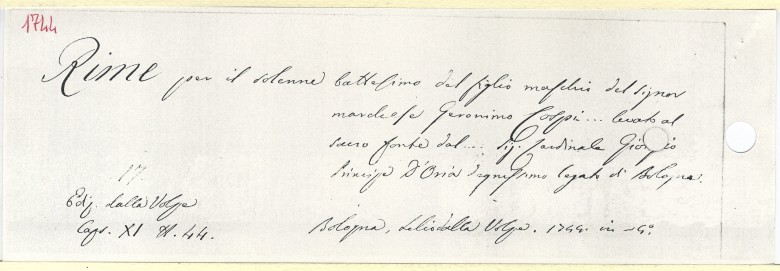 1744
Rime per il solenne battesimo del figlio maschio del signor
marchese Geronimo Cospi... levato al
sacro fonte dal... sig. Cardinale Giorgio
Principe D'Oria degnissimo legato di Bologna.
Ediz. dalla Volpe
Caps. XI N. 44.
Bologna, Lelio dalla Volpe. 1744. in -4°.